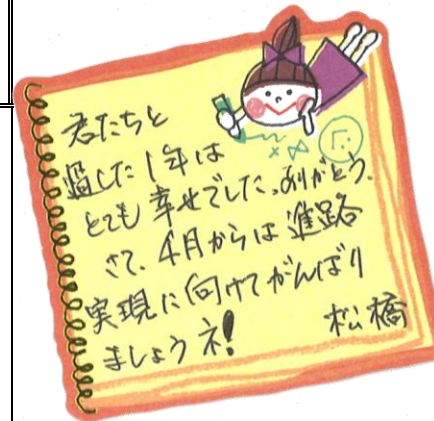 君たちと
過した1年は
とても幸せでした。ありがとう。
さて、4月からは進路
実現に向けてがんばり
ましょうネ!
松橋